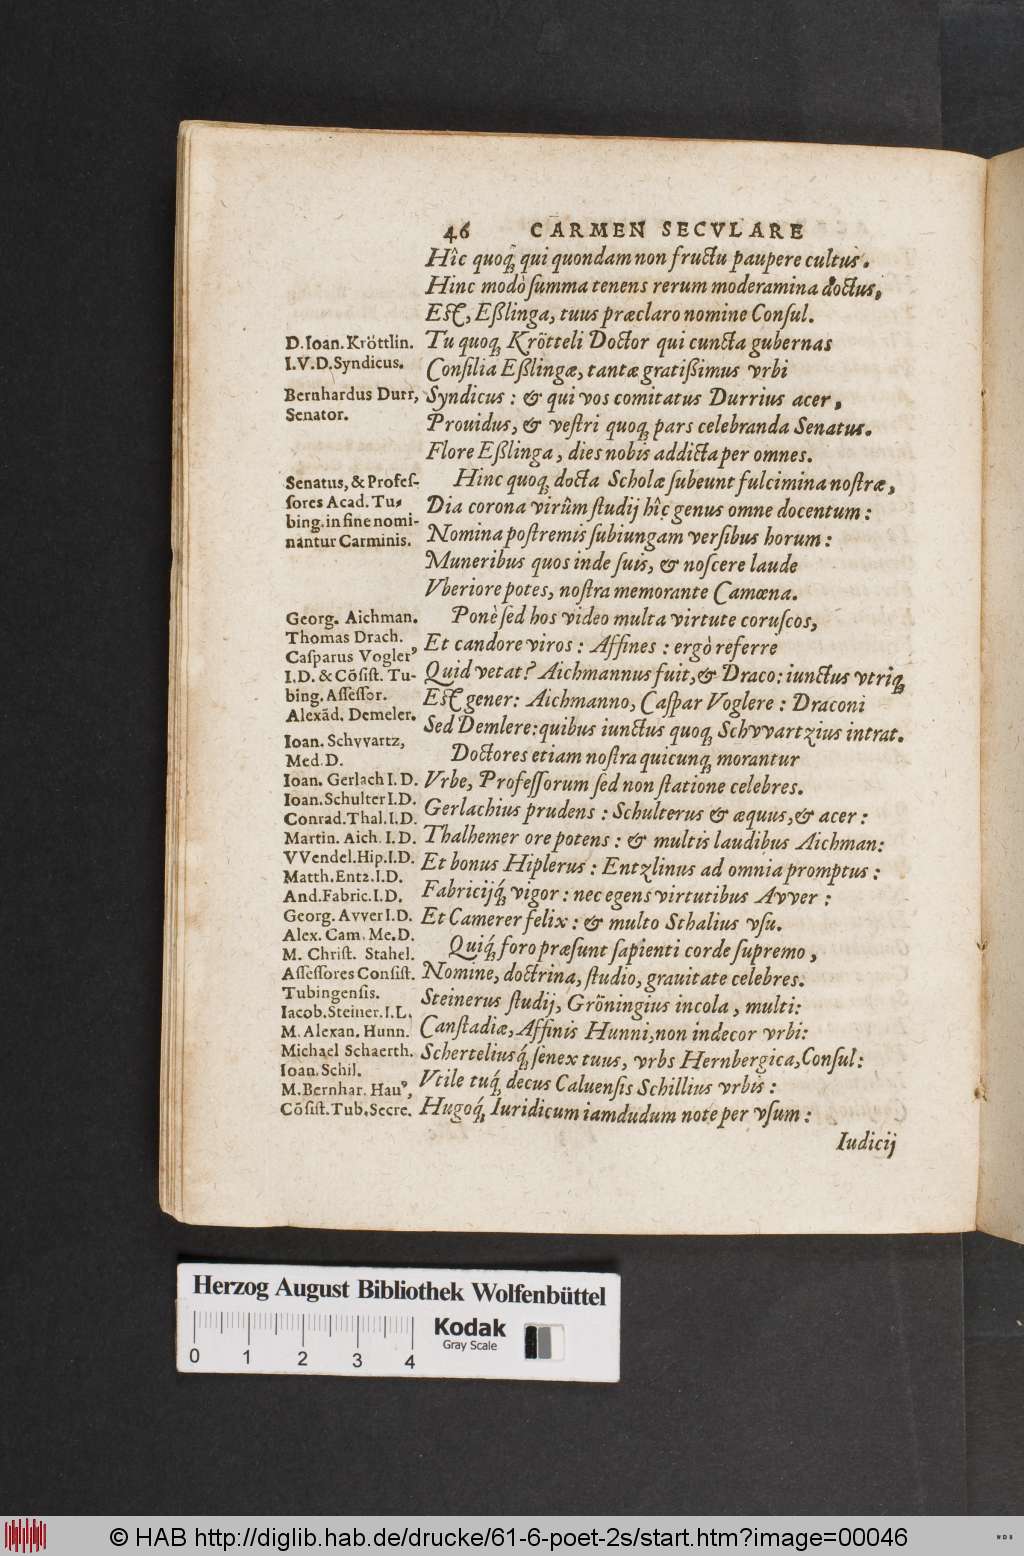 46 CARMEN SECVLARE
Hîc quoq́ꝫ qui quondam non fructu paupere cultus.
Hinc modò ſumma tenens rerum moderamina doctus,
Eſt, Eßlinga, tuus præclaro nomine Conſul.
D. Ioan. Kröttlin.
I.V.D. Syndicus.
Tu quoqꝫ Krötteli Doctor qui cuncta gubernas
Conſilia Eßlingæ, tantæ gratißimus vrbi
Bernhardus Durr,
Senator.
Syndicus: & qui vos comitatus Durrius acer,
Prouidus, & veſtri quoqꝫ pars celebranda Senatus.
Flore Eßlinga, dies nobis addicta per omnes.
Senatus, & Profeſ-
ſores Acad. Tu-
bing. in fine nomi-
nantur Carminis.
Hinc quoqꝫ docta Scholæ ſubeunt fulcimina noſtræ,
Dia corona virûm ſtudij hîc genus omne docentum:
Nomina poſtremis ſubiungam verſibus horum:
Muneribus quos inde ſuis, & noſcere laude
Vberiore potes, noſtra memorante Camœna.
Georg. Aichman.
Thomas Drach.
Caſparus Vogler,
I.D. & Cõſiſt. Tu-
bing. Aſſeſſor.
Alexãd. Demeler.
Ioan. Schvvartz,
Med. D.
Ponè ſed hos video multa virtute coruſcos,
Et candore viros: Affines: ergò referre
Quid vetat? Aichmannus fuit, & Draco: iunctus vtriqꝫ
Eſt gener: Aichmanno, Caſpar Voglere: Draconi
Sed Demlere: quibus iunctus quoqꝫ Schvvartzius intrat.
Doctores etiam noſtra quicunqꝫ morantur
Ioan. Gerlach I.D.
Ioan. Schulter I.D.
Conrad. Thal. I.D.
Martin. Aich. I.D.
VVendel. Hip. I.D.
Matth. Entz. I.D.
And. Fabric. I.D.
Georg. Avver I.D.
Alex. Cam. Me. D.
M. Chriſt. Stahel.
Vrbe, Profeſſorum ſed non ſtatione celebres.
Gerlachius prudens: Schulterus & æquus, & acer:
Thalhemer ore potens: & multis laudibus Aichman:
Et bonus Hiplerus: Entzlinus ad omnia promptus:
Fabricijq́ꝫ vigor: nec egens virtutibus Avver:
Et Camerer felix: & multo Sthalius vſu.
Aſſeſſores Conſiſt.
Tubingenſis.
Iacob. Steiner. I.L.
M. Alexan. Hunn.
Michael Schaerth.
Ioan. Schil.
M. Bernhar. Hauꝰ,
Cõſiſt. Tub. Secre.
Quiq́ꝫ foro præſunt ſapienti corde ſupremo,
Nomine, doctrina, ſtudio, grauitate celebres.
Steinerus ſtudij, Gröningius incola, multi:
Canſtadiæ, Affinis Hunni, non indecor vrbi:
Scherteliusq́ꝫ ſenex tuus, vrbs Hernbergica, Conſul:
Vtile tuq́ꝫ decus Caluenſis Schillius vrbis:
Hugoq́ꝫ Iuridicum iamdudum note per vſum:
Iudicij
Herzog August Bibliothek Wolfenbüttel
0 1 2 3 4
Kodak
Gray Scale
© HAB http://diglib.hab.de/drucke/61-6-poet-2s/start.htm?image=00046